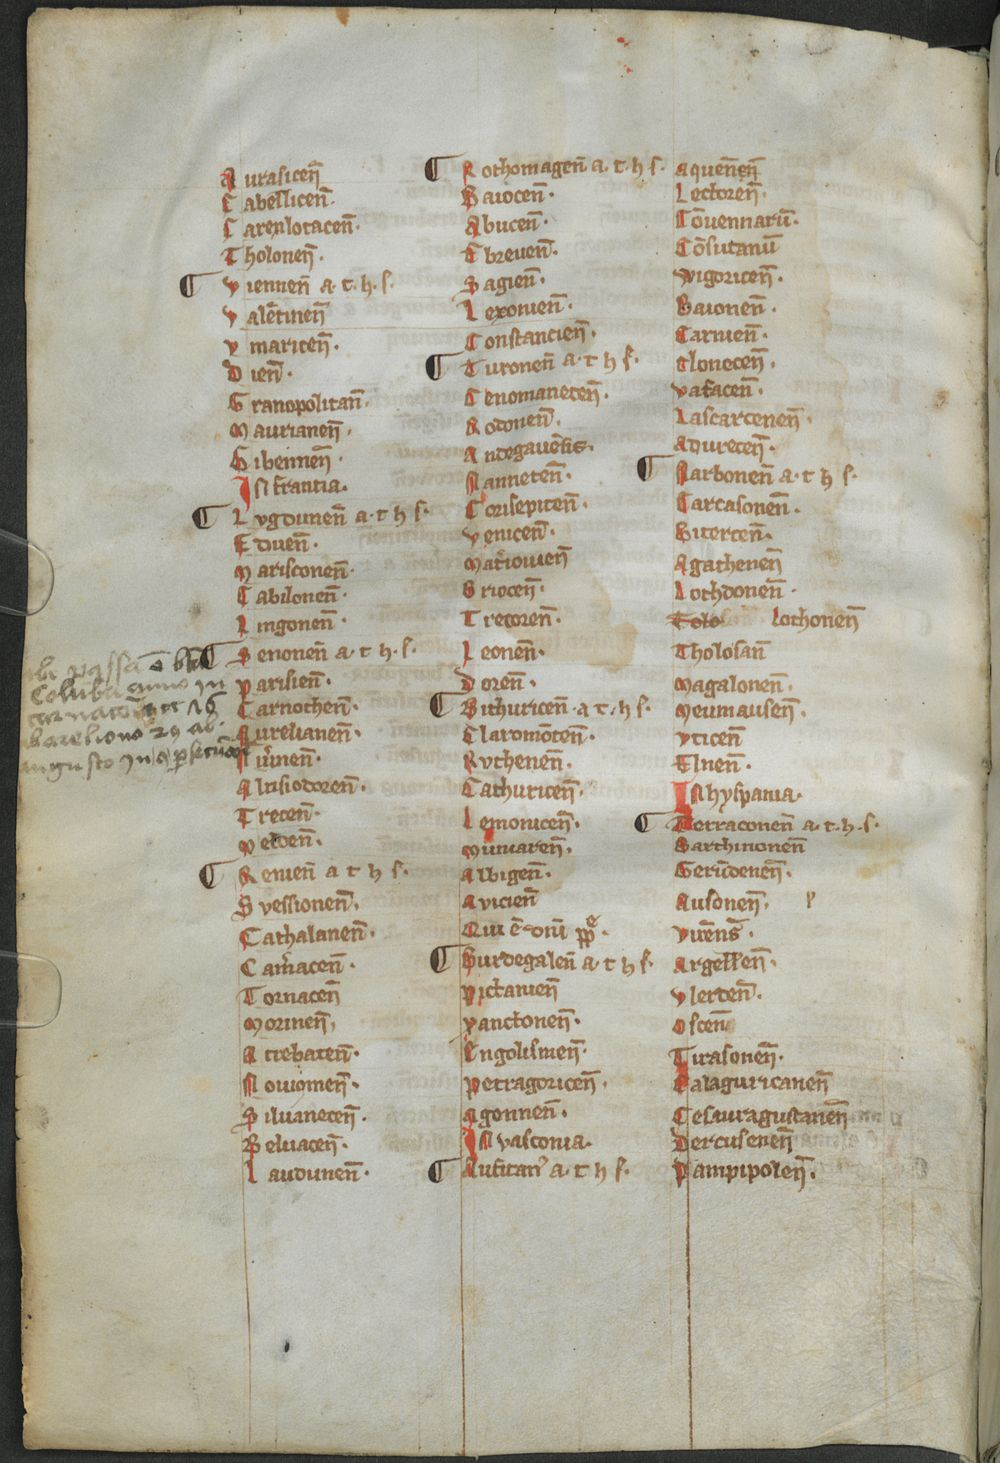 Aurasicen̄
Cabellicen̄.
Carexlotacen̄.
Tholonen̄.
¶ Viennen̄ a. t. h. s.
Valētinen̄
Vmariten̄.
Dien̄.
Granopolitan̄.
Maurianen̄.
Gibennen̄.
IN francia.
¶ Lygdunen̄ a. t h s.
Eduen̄.
Marisconen̄.
Cabilonen̄.
Lingonen̄.
¶ Senonen̄ a. t. h. s.
Parisien̄.
Carnothen̄.
Aurelianen̄.
Niu̓nen̄.
Altisiodoren̄.
Trecen̄.
Melden̄.
¶ Remen̄ a t h s.
Svessionen̄.
Cathalanen̄.
Cam̓acen̄.
Tornacen̄
Morinen̄.
Attebaten̄.
Nouiomen̄.
Siluaneten̄.
Beluacen̄.
Laudunen̄.
ibi passa ē bt̄a
Colūba anno
¶ Rothomagen̄ a. t. h s.
Baiocen̄.
Abucen̄.
Ebreuen̄.
Sagien̄.
Lexouien̄.
Constancien̄.
¶ Turonen̄ a. t h s.
Cenomaneten̄.
Redonen̄.
Andegauēsis.
Nanneten̄.
Corisepiten̄.
Veniten̄.
Mat̓iouien̄
Briocen̄.
Trecoren̄.
Leonen̄.
Doren̄.
¶ Bithuricen̄. a t. h s.
Claromōten̄.
Ruthenen̄.
Cathuricen̄.
Lemouicen̄.
Mimaten̄.
Albigen̄.
Anicien̄
Qui ē dn̄i pp̄e.
¶ Burdegalen̄ a. t h s.
Pictauien̄
Xanctonen̄.
Engolismen̄.
Petragoricen̄.
Agennen̄.
IN vasconia.
¶ Auxitan̄ a. t h s.
Aquen̄sen̄
Lectoren̄.
Cōuennarū.
Cōsutanū
Wigoricen̄.
Baionen̄.
Carnien̄.
Elonecen̄.
Vafacen̄.
Lascarcenen̄.
Adureten̄.
¶ Narbonen̄ a. t h s.
Carcasonen̄.
Biterten̄.
Agathenen̄
Lothdonen̄.
Tolo lothonen̄
Tholosan̄
Magalonen̄.
Meumausen̄.
Vticen̄
Elnen̄.
IN hyspania.
¶ Terraconen̄ a. t. h. s.
Barchinonen̄
Gerūdenen̄.
Ausonen̄.
Vicens̄.
Argellen̄.
Ylerden̄.
Oscen̄
Tirasonen̄.
Calaguricanen̄
Cesauragustanen̄
Dertusenen̄
Pampipolen̄.